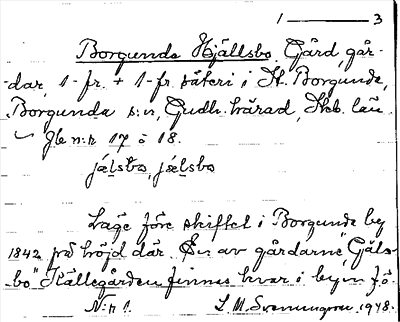 1 — 3
Borgunda Hjällsbo, Gård, går-
dar, 1-fr. + 1-fr. säteri i St. Borgunda,
Borgunda s:n, Gudh. härad, Skb. län
Jb n:r 17 o 18.
jælsbo, jælsbo
Läge före skiftet i Borgunda by
1842 på höjd där. En av gårdarne, "Gäls-
bo" Källegården finnes kvar i byn fö.
N:r 1. L. M. Svenungson, 1948.